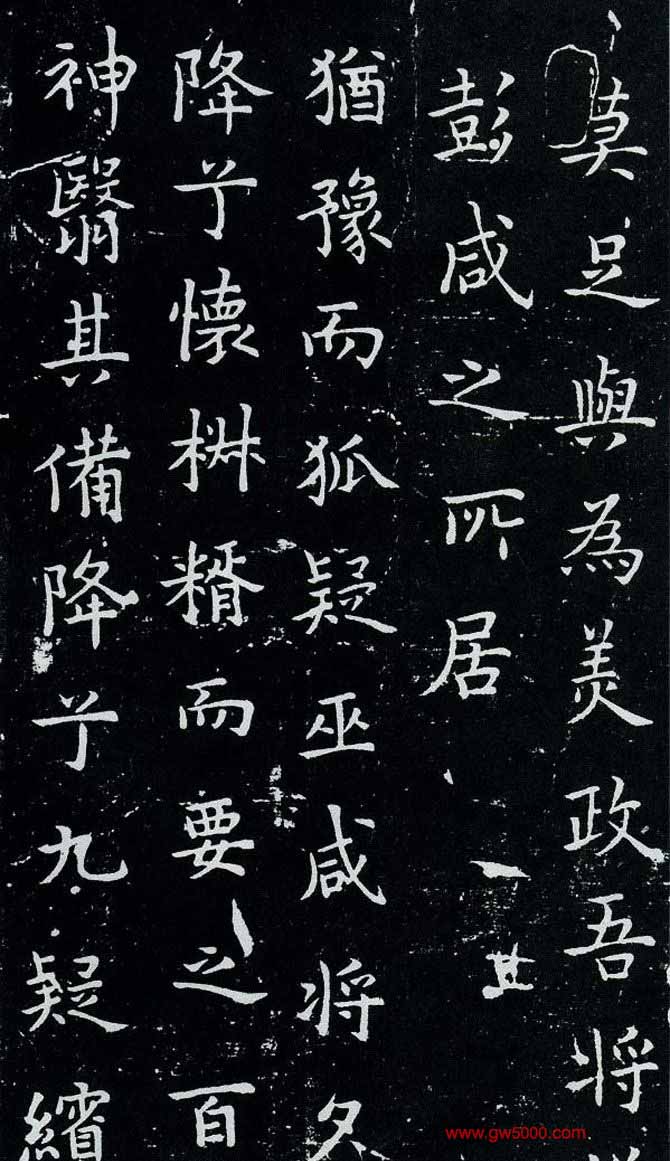 莫足與為美政吾将
彭咸之所居
猶豫而狐疑巫咸将夕
降兮懷椒糈而要之百
神翳其備降兮九疑繽
www.gw5000.com